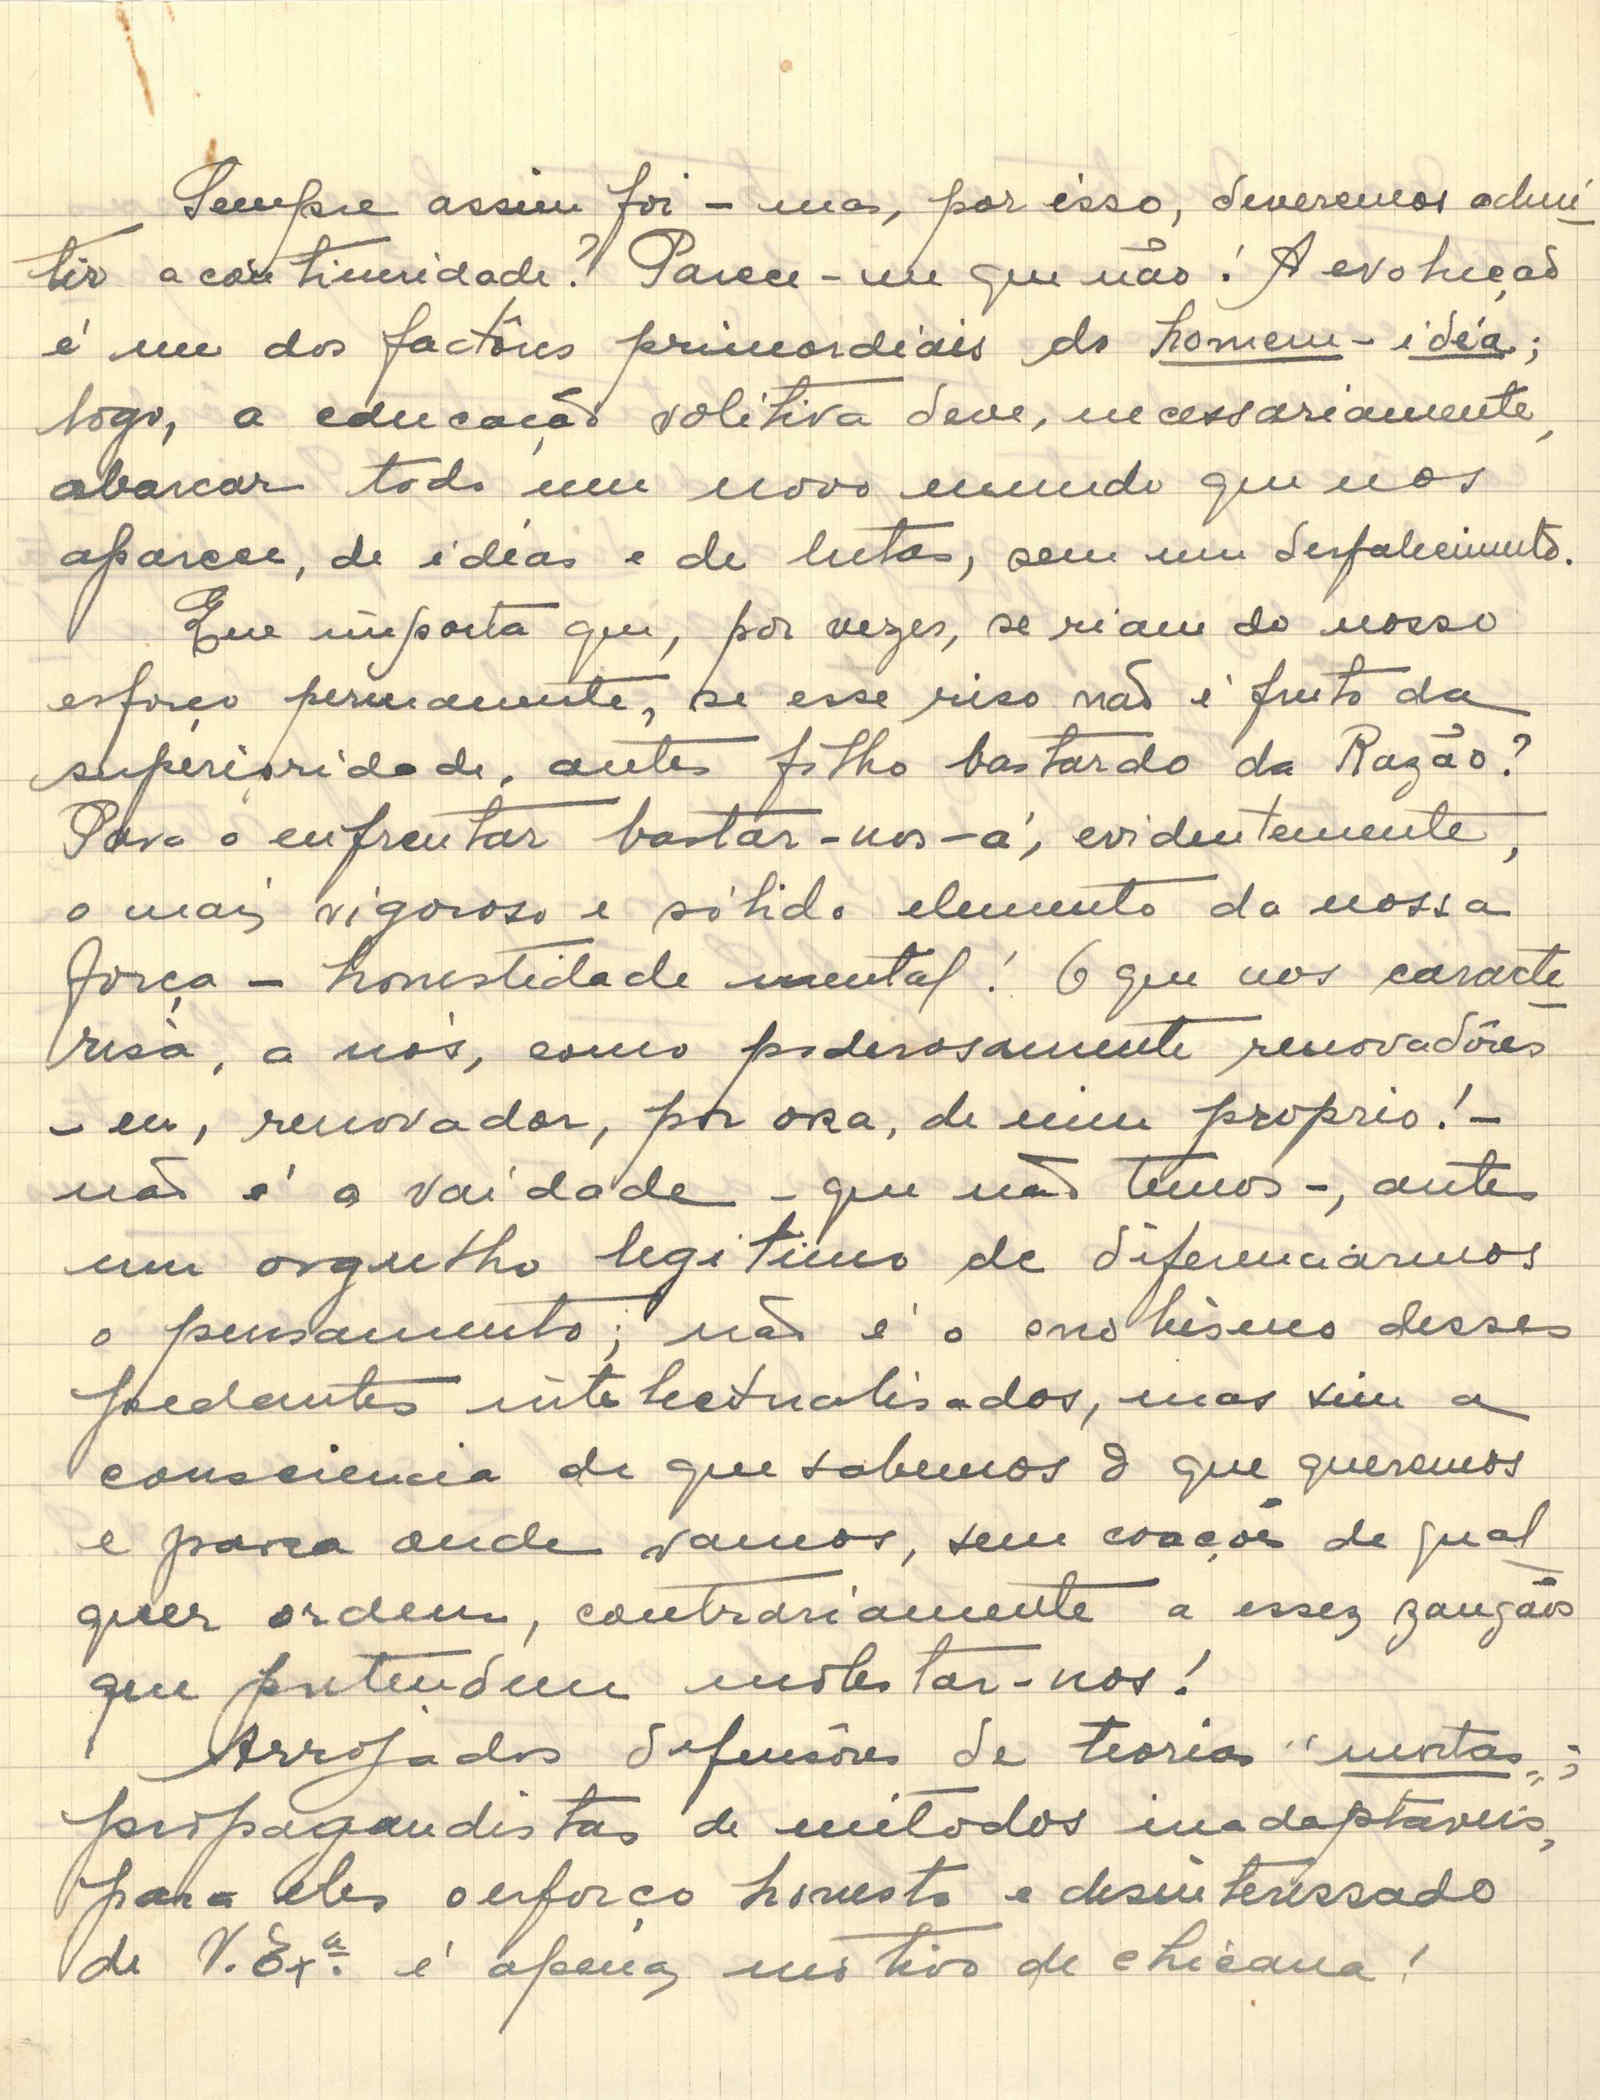 Sempre assim foi – mas, por isso, deveremos admi
tir a continuidade? Parece-me que não! A evolução
é um dos factôres primordiais do homem-idéa;
logo, a educação volitiva deve, necessariamente,
abarcar todo um novo mundo que nos
aparece, de idéas e de lutas, sem um desfalecimento.
Que importa que, por vezes, se riam do nosso
esforço permanente, se esse riso não é fruto da
superioridade, antes filho bastardo da Razão?
Para o enfrentar bastar-nos-á, evidentemente,
o mais vigoroso e sólido elemento da nossa
força – honestidade mental! O que nos caracte
risa, a nós, como poderosamente renovadôres
– eu, renovador, por ora, de mim proprio! –
não é a vaidade – que não temos –, antes
um orgulho legitimo de diferenciarmos
o pensamento; não é o snobismo desses
pedantes intelectualisados, mas sim a
consciencia de que sabemos o que queremos
e para onde vamos, sem coações de qual
quer ordem, contrariamente a esses zangãos
que pretendem molestar-nos!
Arrojados defensôres de teorias "mortas";
propagandistas de métodos inadaptaveis,
para eles o esforço honesto e desinteressado
de V. Exª. é apenas motivo de chicana!